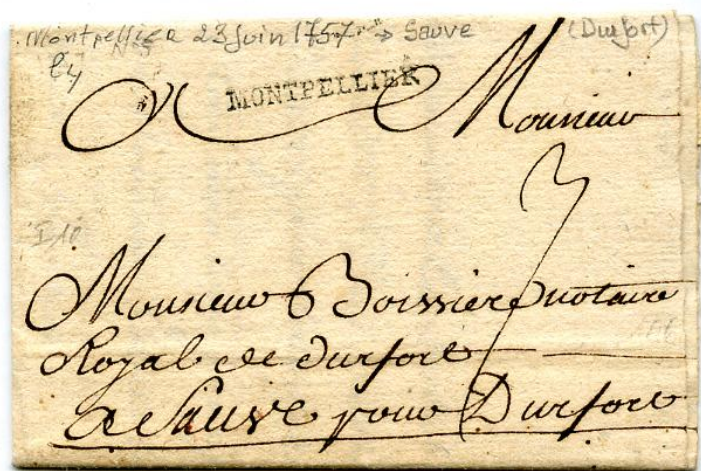 Montpellier 23 Juin 1757 → Sauve (Durfort)
MONTPELLIER
Monsieur
3
I 10
Monsieur Boissier notaire
Royal de durfort
a Sauve pour Durfort